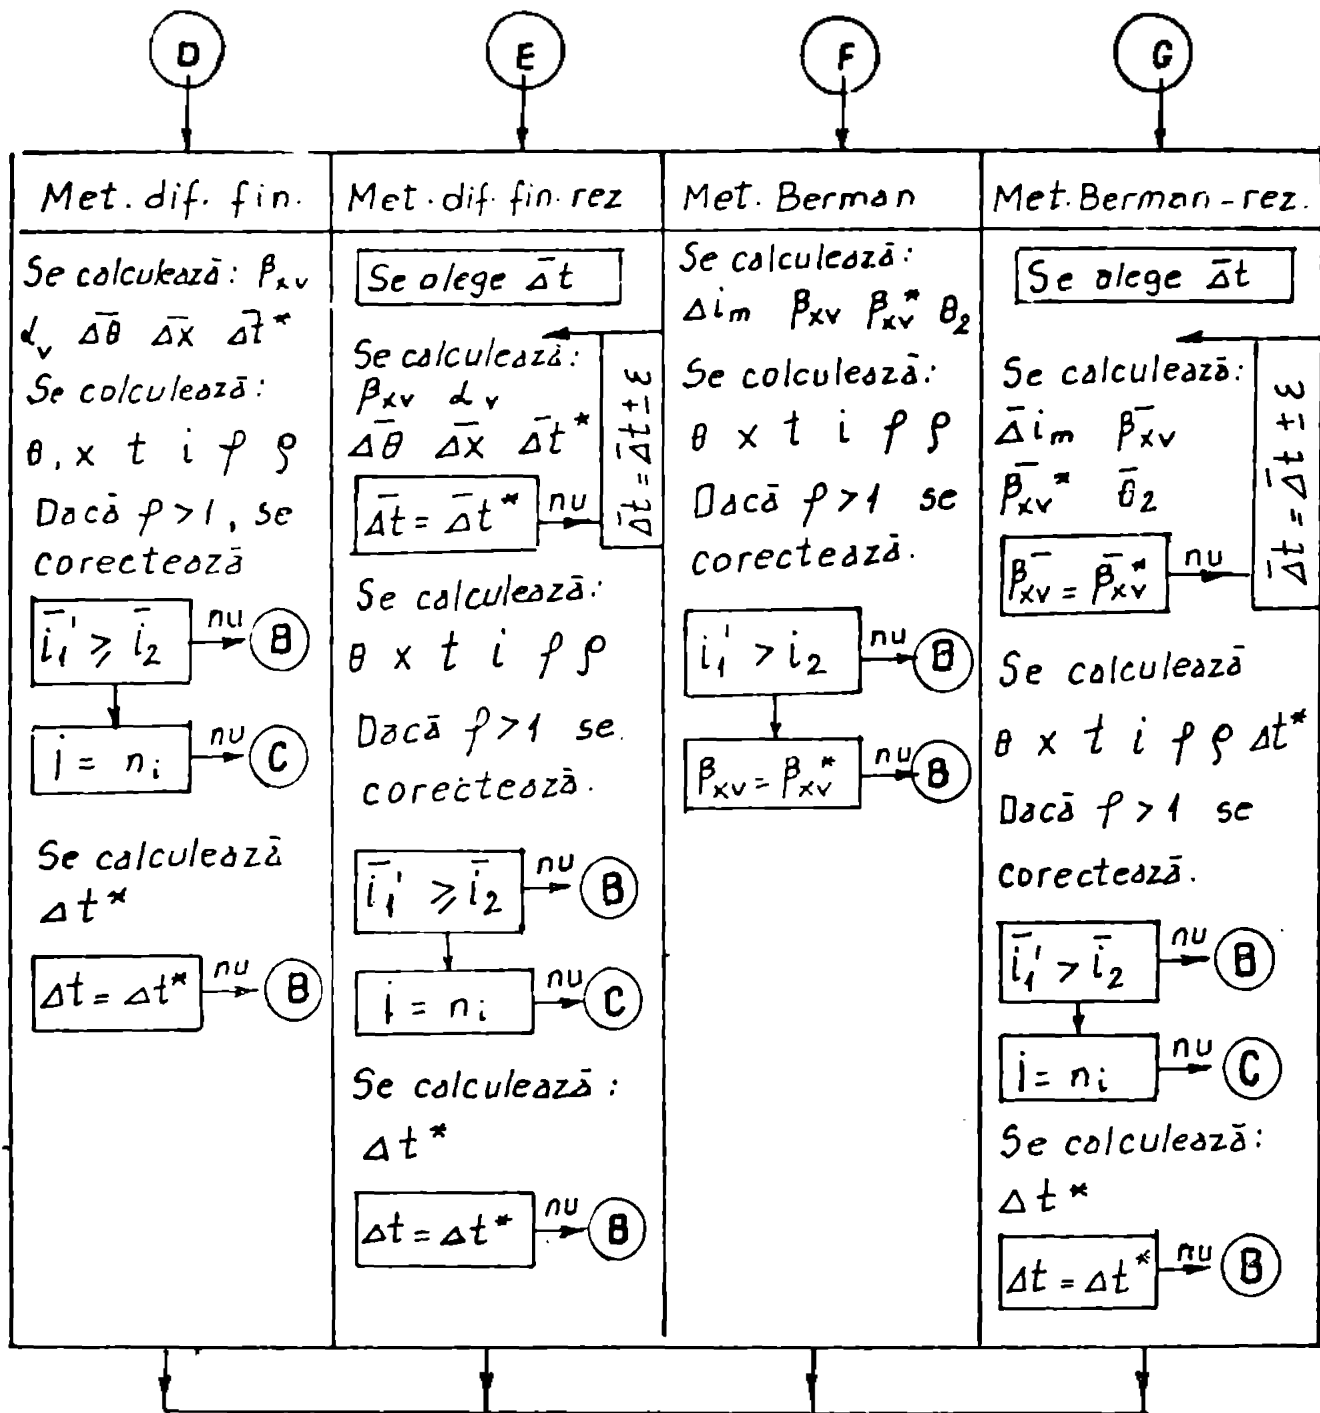 D
E
F
G
Met. dif. fin.
Se calculează: βxv
αv Δ̄θ Δ̄x Δ̄t*
Se calculează:
θ, x t i φ ρ
Dacă φ > 1, se
corectează
ī₁' ⩾ ī₂ nu B
j = nᵢ nu C
Se calculează
Δt*
Δt = Δt* nu B
Met. dif. fin. rez
Se alege Δ̄t
Se calculează:
βxv αv
Δ̄θ Δ̄x Δ̄t*
Δ̄t = Δ̄t* nu
Δ̄t = Δ̄t ± ε
Se calculează:
θ x t i φ ρ
Dacă φ > 1 se
corectează.
ī₁' ⩾ ī₂ nu B
j = nᵢ nu C
Se calculează:
Δt*
Δt = Δt* nu B
Met. Berman
Se calculează:
Δim βxv βxv* θ₂
Se calculează:
θ x t i φ ρ
Dacă φ > 1 se
corectează.
i₁' > i₂ nu B
βxv = βxv* nu B
Met. Berman - rez.
Se alege Δ̄t
Se calculează:
Δ̄im β̄xv
β̄xv* θ̄₂
β̄xv = β̄xv* nu
Δ̄t = Δ̄t ± ε
Se calculează
θ x t i φ ρ Δt*
Dacă φ > 1 se
corectează.
ī₁' > ī₂ nu B
j = nᵢ nu C
Se calculează:
Δt*
Δt = Δt* nu B